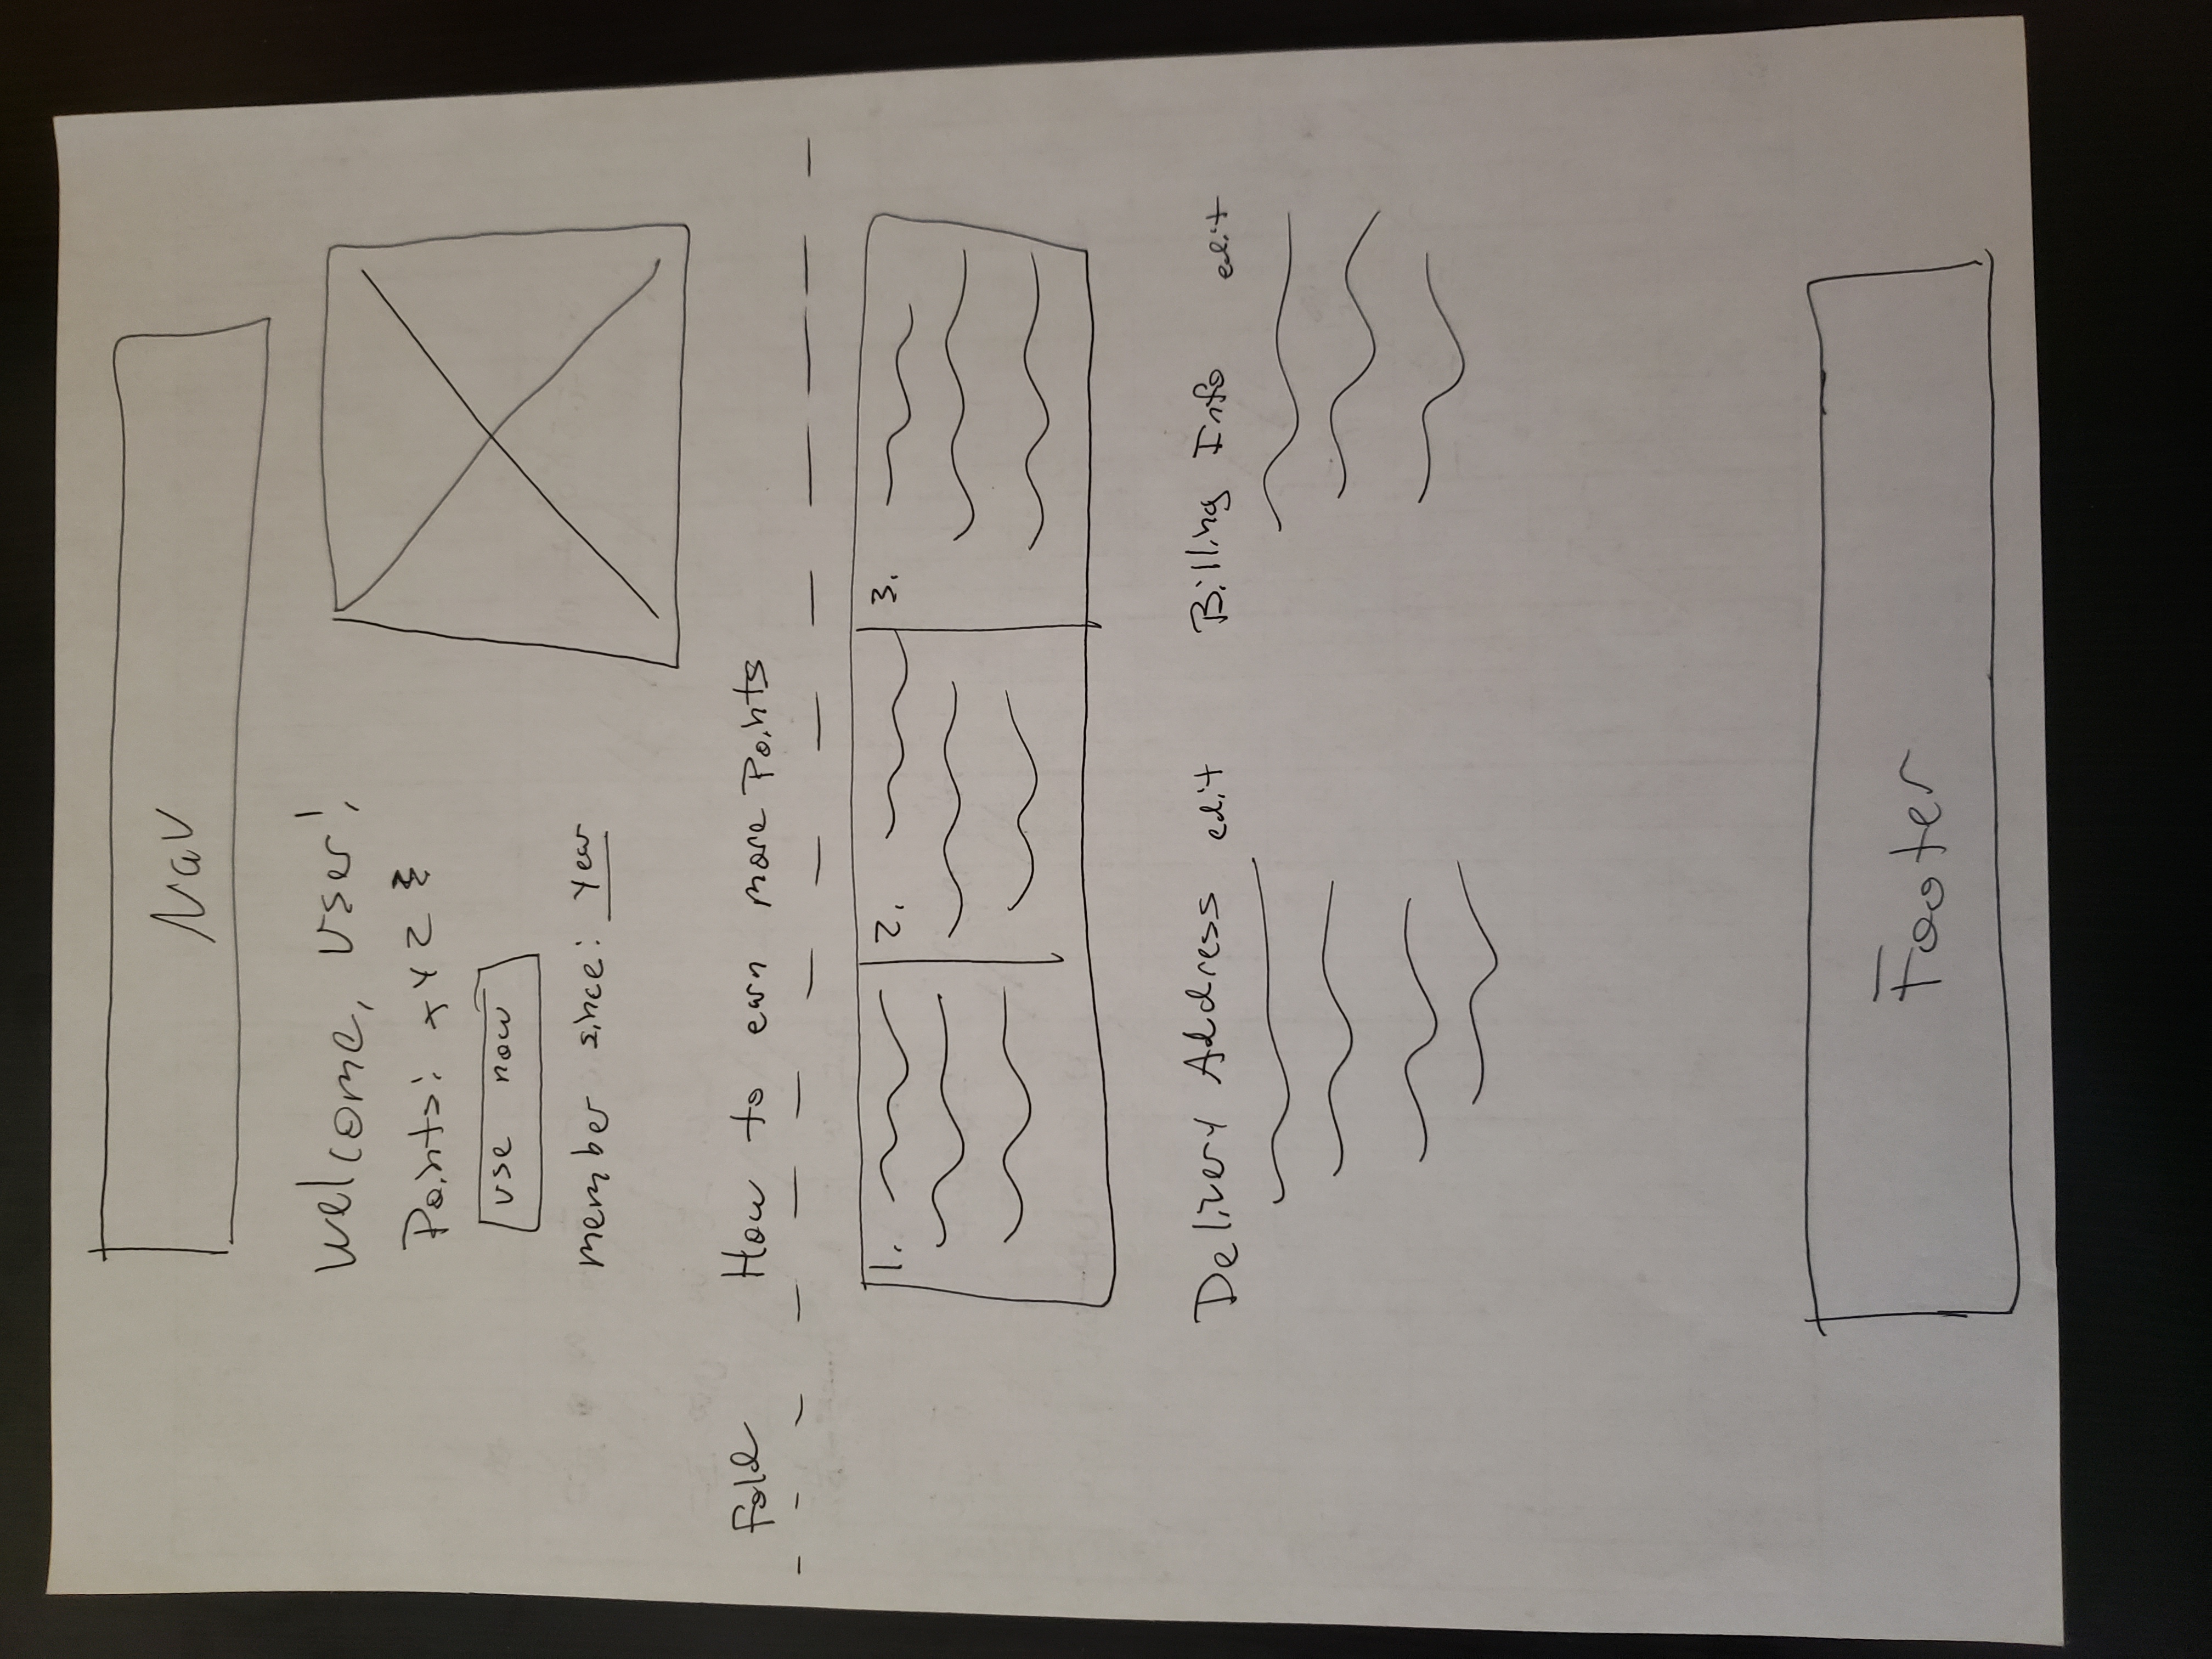 Nav
Welcome, User!
Points: XYZ
use now
member since: Year
Fold How to earn more Points
1. 2. 3.
Delivery Address edit Billing Info edit
Footer